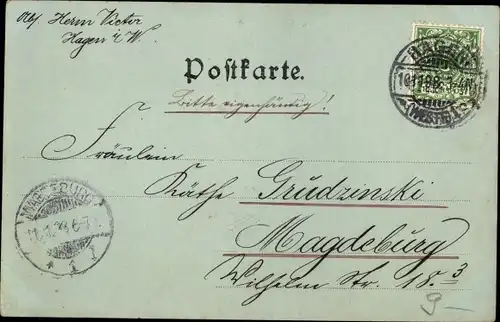 Abs. Herm Victor
Hagen i/W.
Postkarte.
Bitte eigenhändig!
Fräulein
Käthe Grudzinski
Magdeburg
Wilhelm Str. 18.³
9-
HAGEN
(WESTF.)
MAGDEBURG
* 1